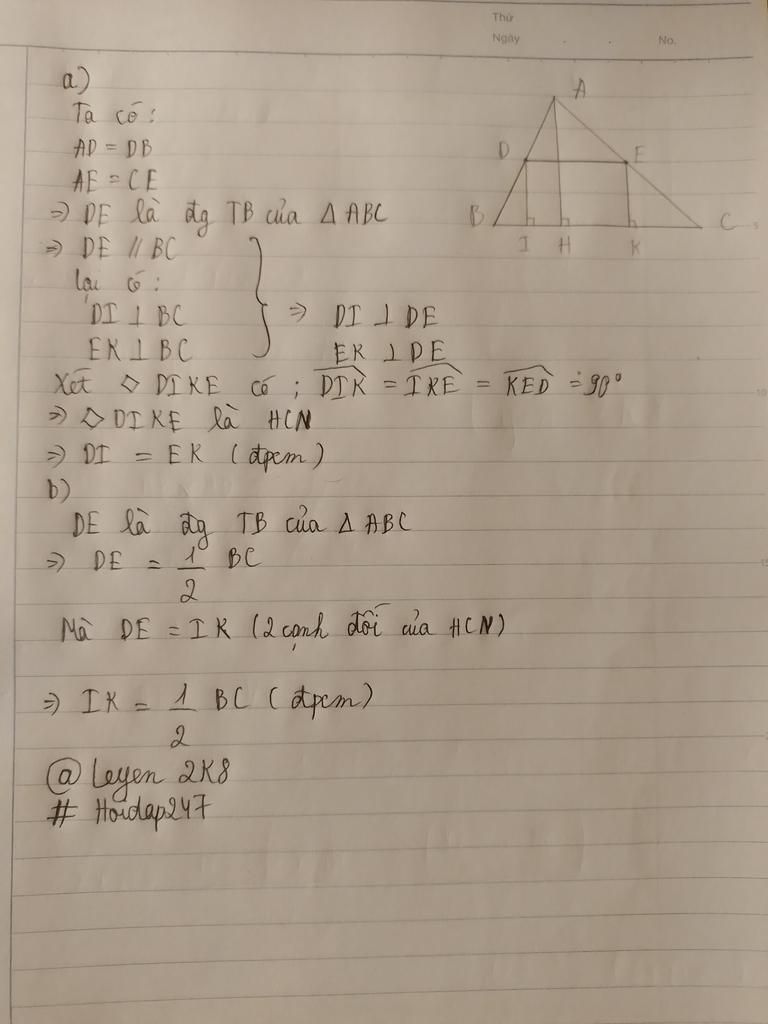 Thứ
Ngày . . No.
a)
Ta có:
AD = DB
AE = CE
=> DE là đg TB của Δ ABC
=> DE // BC
lại có:
DI ⊥ BC => DI ⊥ DE
EK ⊥ BC EK ⊥ DE
Xét ◇ DIKE có ; DIK = IKE = KED = 90°
=> ◇ DIKE là HCN
=> DI = EK (đpcm)
b)
DE là đg TB của Δ ABC
=> DE = 1/2 BC
Mà DE = IK (2 cạnh đối của HCN)
=> IK = 1/2 BC (đpcm)
@ Leyen 2K8
# Hoidap247
A
D E
B C
I H K